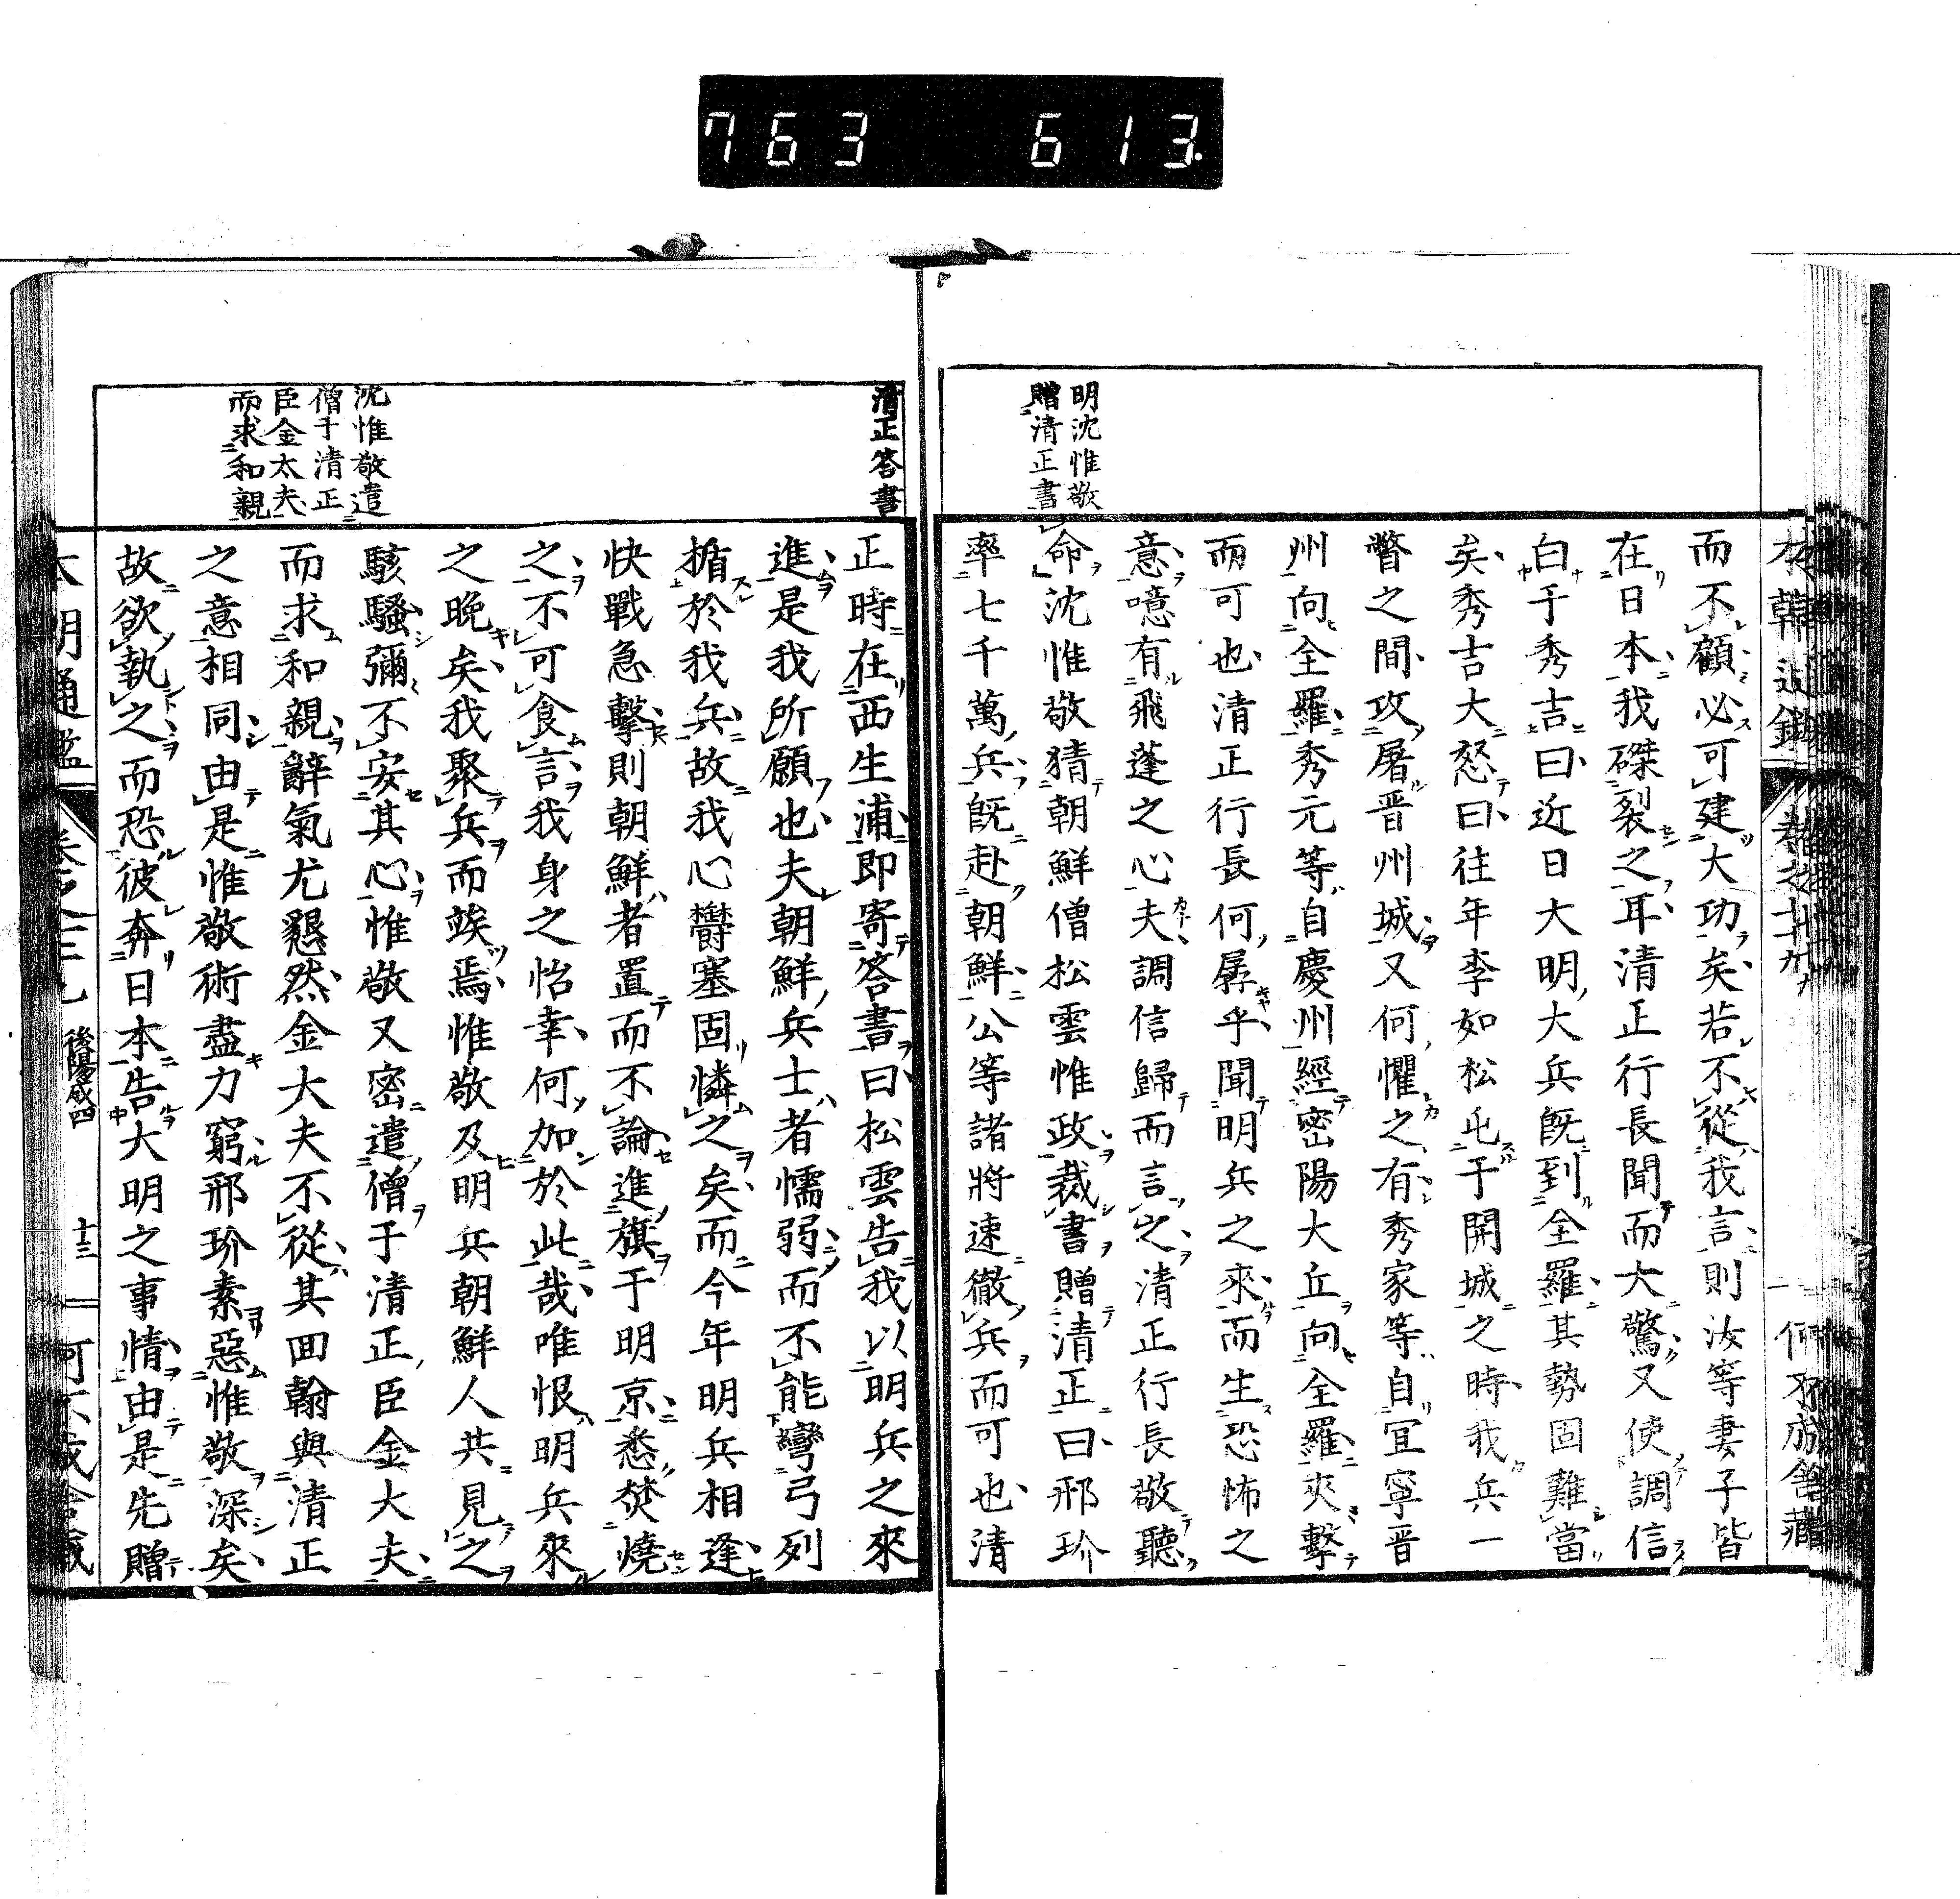 763 613
明沈惟敬
贈清正書
而不顧必可建大功矣若不從我言則汝等妻子皆
在日本我磔裂之耳清正行長聞而大驚又使調信
白于秀吉曰近日大明大兵既到全羅其勢固難當
矣秀吉大怒曰往年李如松屯于開城之時我兵一
瞥之間攻屠晋州城又何懼之有秀家等自宜寧晋
州向全羅秀元等自慶州經密陽大丘向全羅夾擊
而可也清正行長何孱乎聞明兵之來而生恐怖之
意噫有飛蓬之心夫調信歸而言之清正行長敬聽
命沈惟敬猜朝鮮僧松雲惟政裁書贈清正曰邢玠
率七千萬兵既赴朝鮮公等諸將速徹兵而可也清
清正答書
沈惟敬遣
僧于清正
臣金太夫
而求和親
正時在西生浦即寄答書曰松雲告我以明兵之來
進是我所願也夫朝鮮兵士者懦弱而不能彎弓列
楯於我兵故我心欝塞固憐之矣而今年明兵相逢
快戰急擊則朝鮮者置而不論進旗于明京悉焚燒
之不可食言我身之怡幸何加於此哉唯恨明兵來
之晚矣我聚兵而竢焉惟敬及明兵朝鮮人共見之
駭騷彌不安其心惟敬又密遣僧于清正臣金大夫
而求和親辭氣尤懇然金大夫不從其回翰與清正
之意相同由是惟敬術盡力窮邢玠素惡惟敬深矣
故欲執之而恐彼奔日本告大明之事情由是先贈
後陽成四
十三